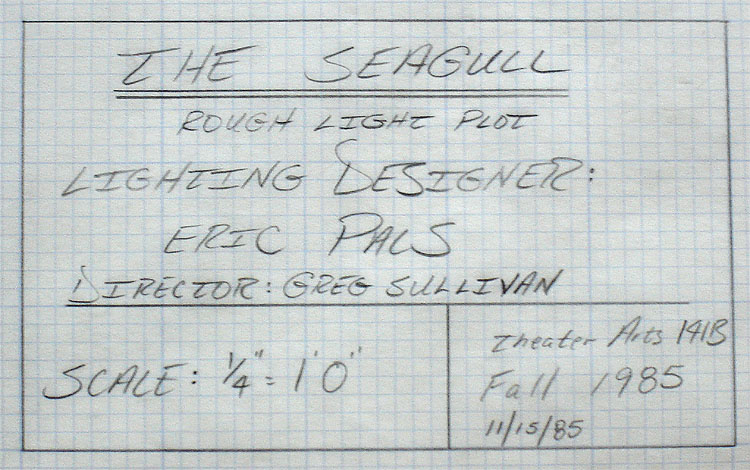 THE SEAGULL
ROUGH LIGHT PLOT
LIGHTING DESIGNER:
ERIC PALS
DIRECTOR: GREG SULLIVAN
SCALE: 1/4" = 1' 0"
Theater Arts 141B
Fall 1985
11/15/85